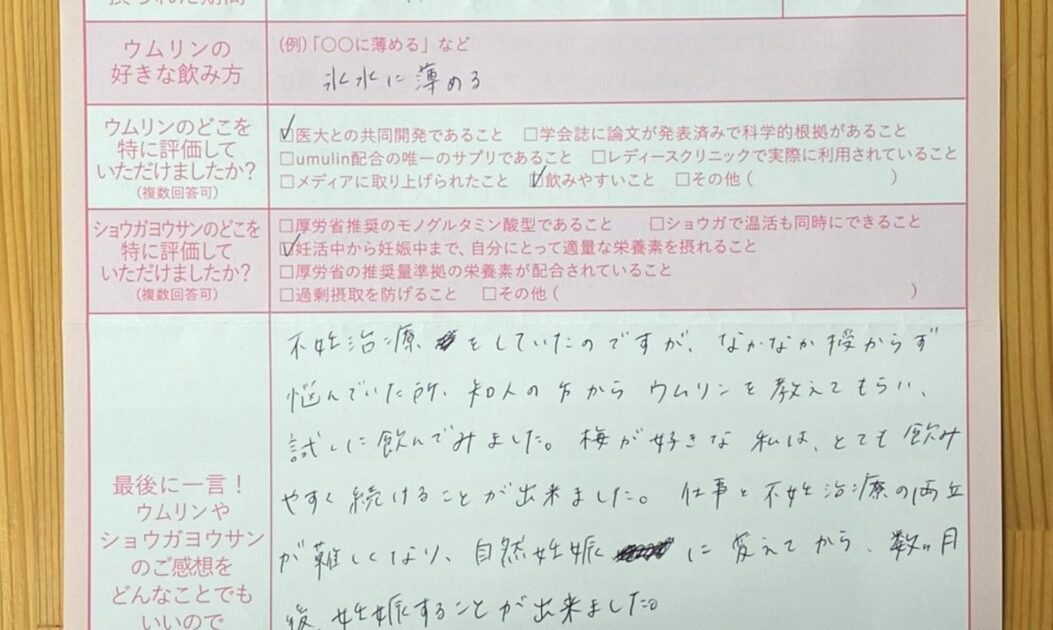 摂られた期間
ウムリンの
好きな飲み方
(例)「〇〇に薄める」など
氷水に薄める
ウムリンのどこを
特に評価して
いただけましたか?
(複数回答可)
☑医大との共同開発であること □学会誌に論文が発表済みで科学的根拠があること
□umulin配合の唯一のサプリであること □レディースクリニックで実際に利用されていること
□メディアに取り上げられたこと ☑飲みやすいこと □その他( )
ショウガヨウサンのどこを
特に評価して
いただけましたか?
(複数回答可)
□厚労省推奨のモノグルタミン酸型であること □ショウガで温活も同時にできること
☑妊活中から妊娠中まで、自分にとって適量な栄養素を摂れること
□厚労省の推奨量準拠の栄養素が配合されていること
□過剰摂取を防げること □その他( )
最後に一言!
ウムリンや
ショウガヨウサン
のご感想を
どんなことでも
いいので
不妊治療をしていたのですが、なかなか授からず
悩んでいた所、知人の方からウムリンを教えてもらい、
試しに飲んでみました。梅が好きな私は、とても飲み
やすく続けることが出来ました。仕事と不妊治療の両立
が難しくなり、自然妊娠に変えてから、数ヶ月
後、妊娠することが出来ました。